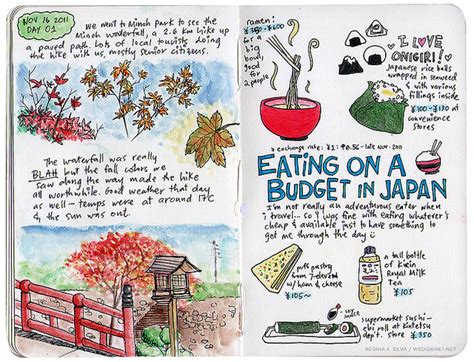 NOV 16 2011
DAY 01
We went to Minoh Park to see the
Minoh waterfall, a 2.6 km hike up
a paved path. Lots of local tourists doing
the hike with us, mostly senior citizens.
The waterfall was really
BLAH but the fall colors we
saw along the way made the hike
all worthwhile. Good weather that day
as well - temps were at around 17C
& the sun was out.
ramen:
¥350~
for a
big
bowl,
good
for
2 people
I LOVE
ONIGIRI!
Japanese rice balls
wrapped in seaweed
& with various
fillings inside
¥100-¥130 at
convenience
stores
* exchange rate: ¥1: ₱0.56 - late Nov. 2011
EATING ON A
BUDGET IN JAPAN
I'm not really an adventurous eater when
i travel - so i was fine with eating whatever's
cheap & available just to have something to
get me through the day
puff pastry
from 7-eleven
w/ ham & cheese
¥105~
a tall bottle
of Kirin
Royal Milk
Tea
¥105
soy
sauce
supermarket sushi-
ebi roll at Kintetsu
dept. store ¥350
REGINA F. SILVA / WEDGIENET.NET